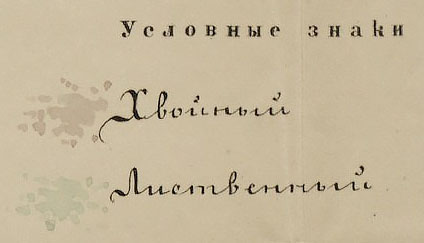 Условные знаки
Хвойный
Лиственный